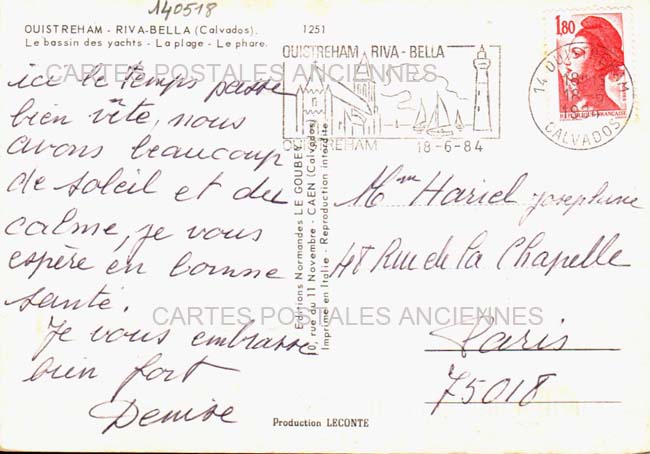 140518
OUISTREHAM - RIVA-BELLA (Calvados).
Le bassin des yachts - La plage - Le phare.
1251
ici le temps passe
bien vite, nous
avons beaucoup
de soleil et du
calme, je vous
espère en bonne
santé.
Je vous embrasse
bien fort
Denise
Editions Normandes LE GOUBEY
0, rue du 11 Novembre - CAEN (Calvados)
Imprimé en Italie - Reproduction interdite
OUISTREHAM - RIVA-BELLA
OUISTREHAM 18-6-84
14 OUISTREHAM
CALVADOS
1,80
REPUBLIQUE FRANÇAISE
Mme Hariel Josephine
48 Rue de la Chapelle
Paris
75018
Production LECONTE
CARTES POSTALES ANCIENNES
CARTES POSTALES ANCIENNES